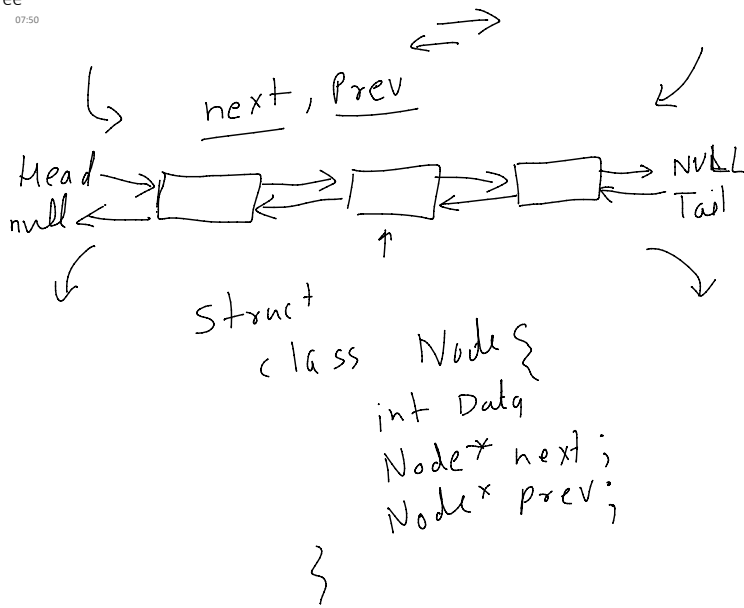 ee
07:50
next, Prev
Head NULL
null Tail
Struct
class Node {
int Data
Node* next;
Node* prev;
}